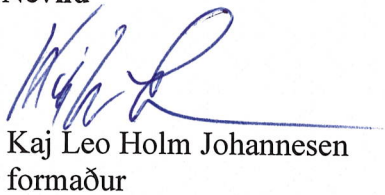 Kaj Leo Holm Johannesen
formaður